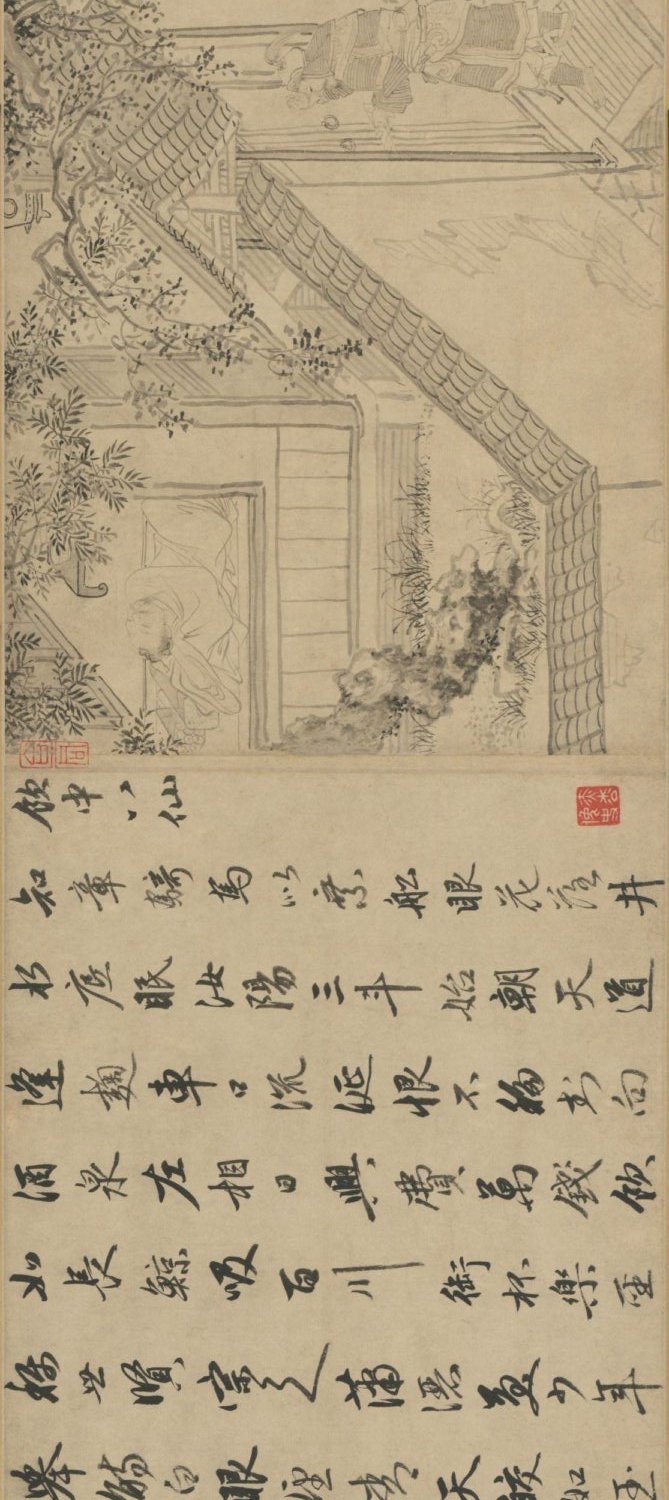 飲中八仙
知章騎馬似乘船眼花落井
水底眠汝陽三斗始朝天道
逢麹車口流涎恨不移封向
酒泉左相日興費萬錢飲
如長鯨吸百川銜杯樂聖
稱世賢宗之瀟洒美少年
舉觴白眼望青天皎如玉